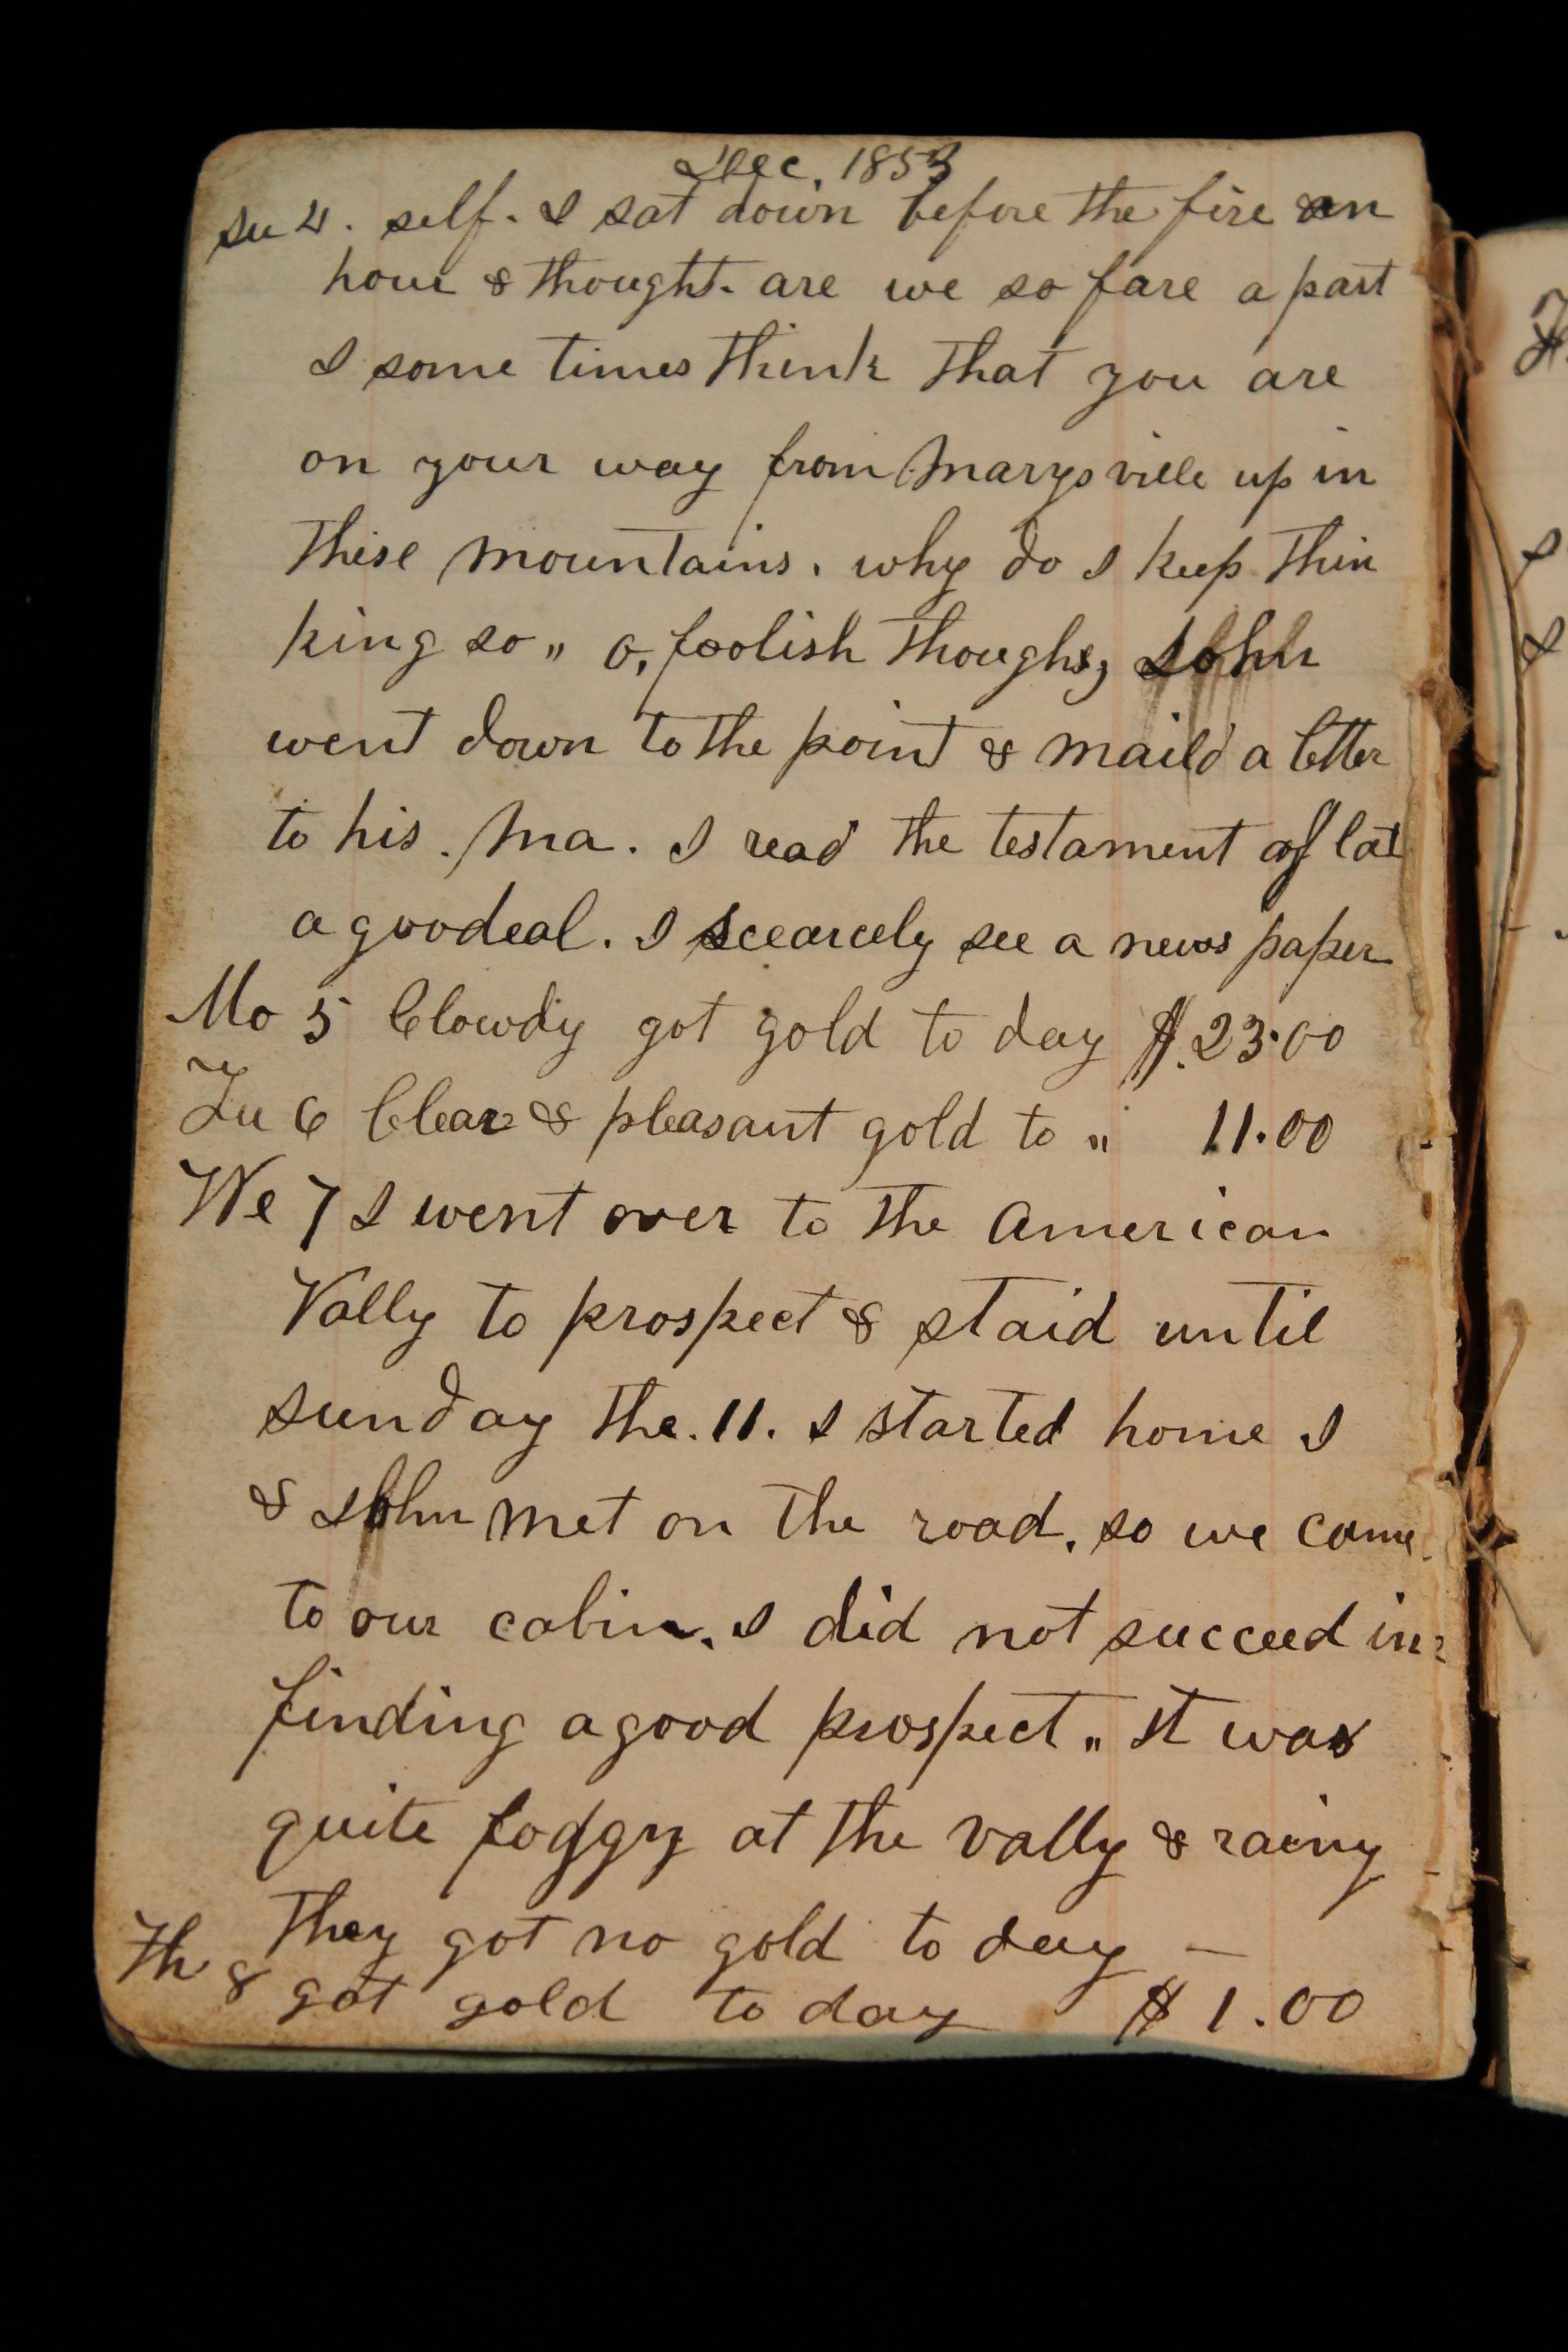 Dec. 1853
Su 4. self. I sat down before the fire an
hour & thought. are we so fare a part
I some times think that you are
on your way from Marysville up in
these mountains. why do I keep thin
king so „ o, foolish thoughs, John
went down to the point & maild a letter
to his. Ma. I read the testament of lat
a goodeal. I scearcely see a news paper
Mo 5 Clowdy got gold to day $.23.00
Tu 6 Clear & pleasant gold to „ 11.00
We 7 I went over to the American
Vally to prospect & staid until
sunday the. 11. I started home I
& John met on the road. so we came
to our cabin. I did not succeed in
finding a good prospect „ it was
quite foggy at the vally & rainy
They got no gold to day —
Th 8 got gold to day $ 1.00